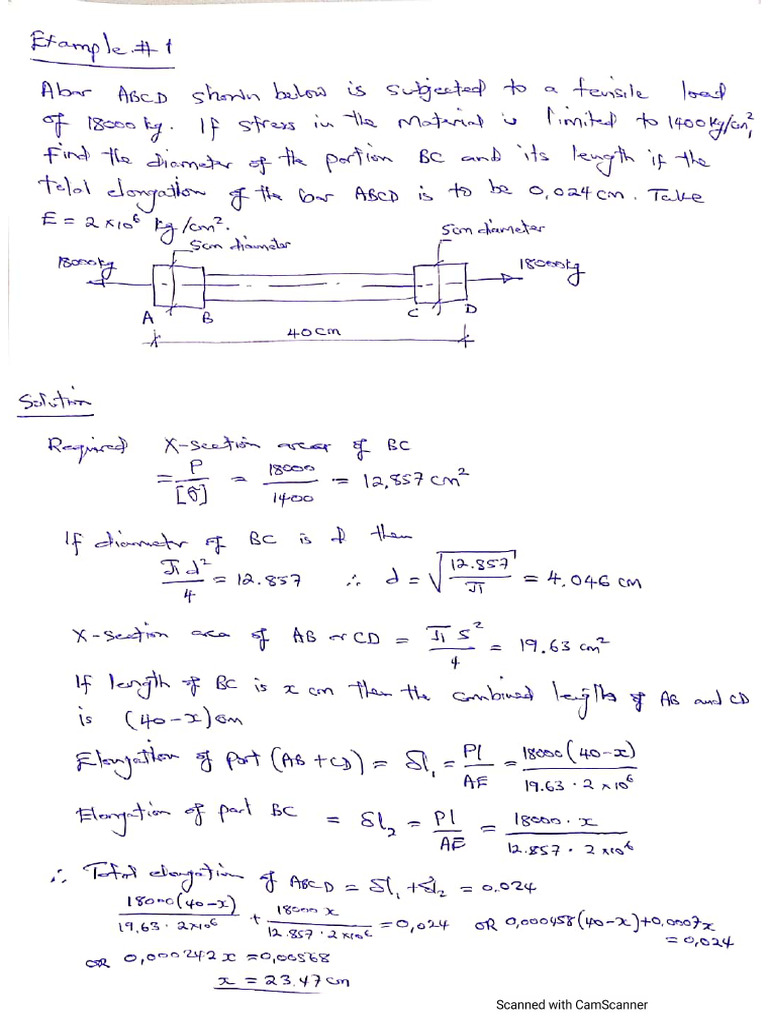 Example #1
A bar ABCD shown below is subjected to a tensile load
of 18000 kg. If stress in the Material is limited to 1400 kg/cm²,
Find the diameter of the portion BC and its length if the
total elongation of the bar ABCD is to be 0,024 cm. Take
E = 2×10⁶ kg/cm².
5cm diameter
5cm diameter
18000kg
18000kg
A B C D
40cm
Solution
Required X-section area of BC
= P/[σ] = 18000/1400 = 12,857 cm²
If diameter of BC is d then
πd²/4 = 12.857 ∴ d = √(12.857/π) = 4.046 cm
X-section area of AB or CD = π5²/4 = 19.63 cm²
If length of BC is x cm then the combined lengths of AB and CD
is (40-x) cm
Elongation of part (AB + CD) = δl₁ = Pl/AE = 18000(40-x)/19.63·2×10⁶
Elongation of part BC = δl₂ = Pl/AE = 18000·x/12.857·2×10⁶
∴ Total elongation of ABCD = δl₁ + δl₂ = 0.024
18000(40-x)/19,63·2×10⁶ + 18000x/12.857·2×10⁶ = 0,024 OR 0,000458(40-x)+0,0007x
= 0,024
OR 0,000242x = 0,00568
x = 23.47 cm
Scanned with CamScanner